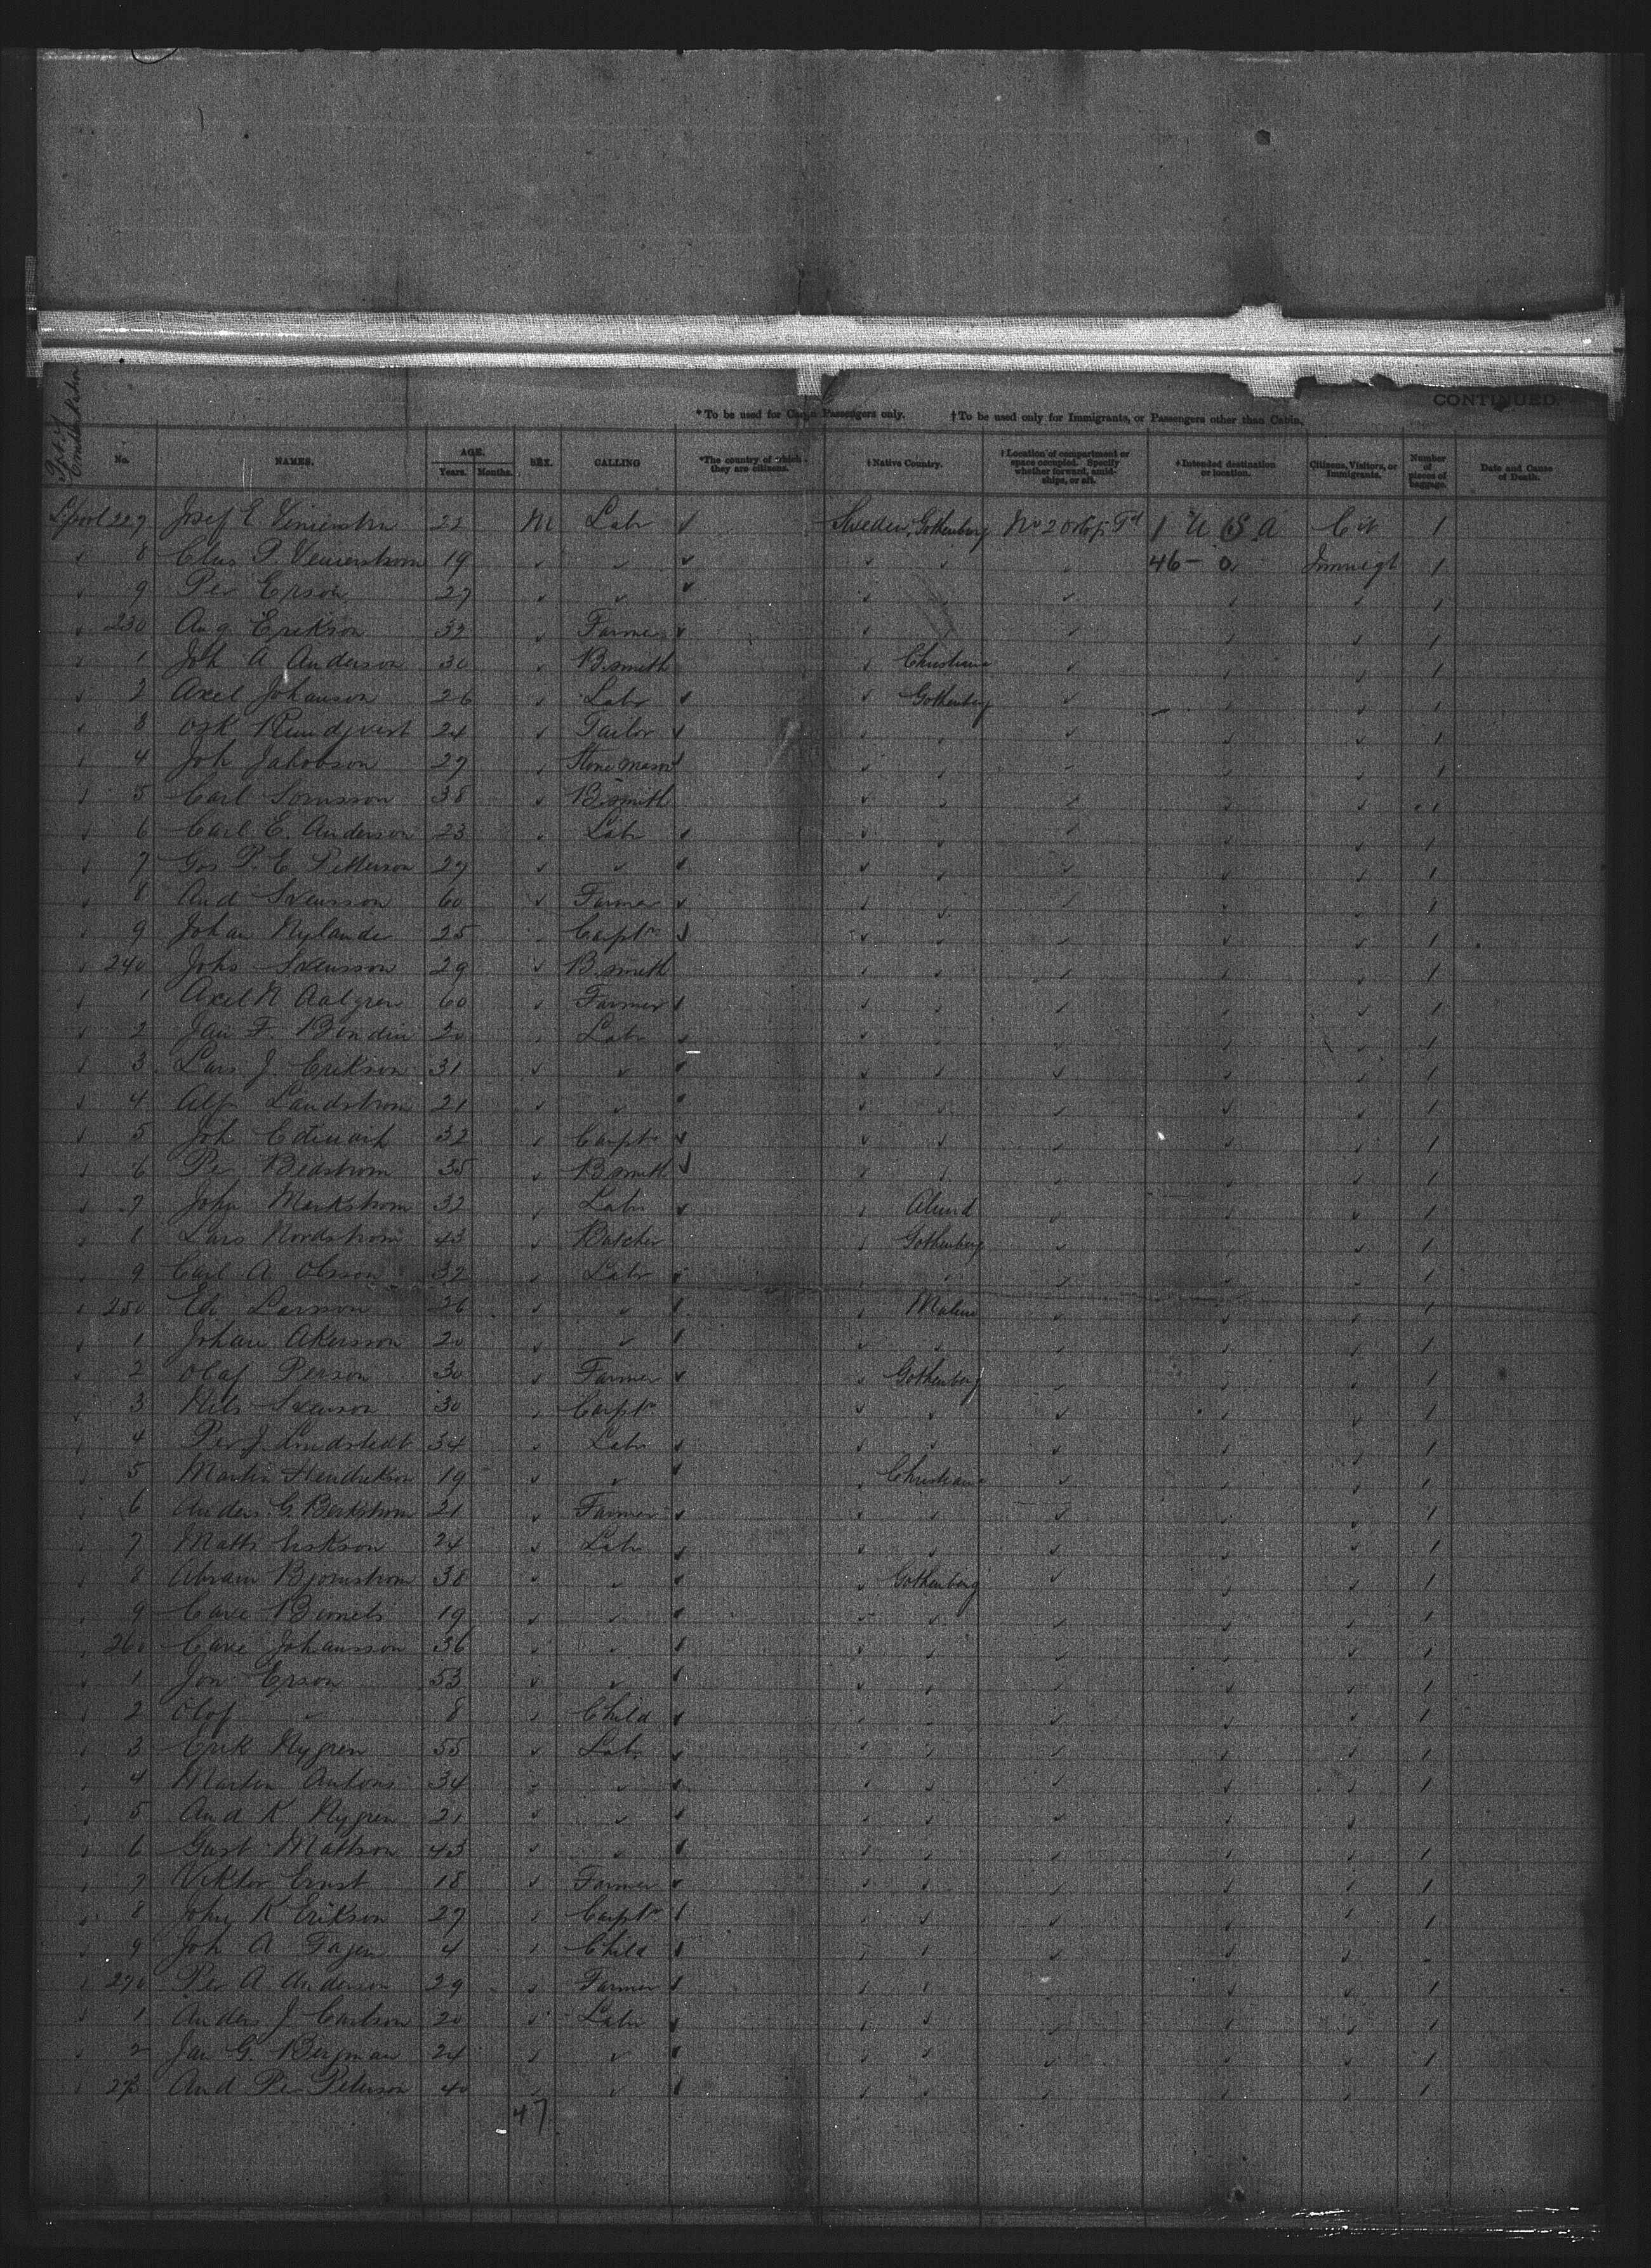 CONTINUED.
* To be used for Cabin Passengers only. † To be used only for Immigrants, or Passengers other than Cabin.
Port of Embarkation No. NAMES. AGE. Years. Months. SEX. CALLING *The country of which they are citizens. † Native Country. † Location of compartment or space occupied. Specify whether forward, amidships, or aft. † Intended destination or location. Citizens, Visitors, or Immigrants. Number of pieces of baggage. Date and Cause of Death.
L'pool 227 Josef E 22 M Labr ✓ Sweden, Gothenberg No 2 1 U S A Cit 1
✓ 8 Clas P. 19 ✓ ✓ ✓ ✓ ✓ ✓ 46 - 0 Immigt 1
✓ 9 Per Erson 27 ✓ ✓ ✓ ✓ ✓ ✓ ✓ ✓ 1
✓ 230 Aug. Erikson 32 ✓ Farmer ✓ ✓ ✓ ✓ ✓ ✓ 1
✓ 1 Joh A Anderson 30 ✓ B.smith ✓ Christiana ✓ ✓ ✓ 1
✓ 2 Axel Johanson 26 ✓ Labr ✓ ✓ Gothenberg ✓ ✓ ✓ 1
✓ 3 Osk Rundqvist 24 ✓ Tailor ✓ ✓ ✓ ✓ ✓ ✓ 1
✓ 4 Joh Jakobson 27 ✓ Stone mason ✓ ✓ ✓ ✓ ✓ 1
✓ 5 Carl 38 ✓ B.smith ✓ ✓ ✓ ✓ ✓ 1
✓ 6 Carl E. Anderson 23 ✓ Labr ✓ ✓ ✓ ✓ ✓ ✓ 1
✓ 7 Gos P. E Petterson 27 ✓ ✓ ✓ ✓ ✓ ✓ ✓ ✓ 1
✓ 8 And Svensson 60 ✓ Farmer ✓ ✓ ✓ ✓ ✓ ✓ 1
✓ 9 Johan Nylander 25 ✓ Carptr ✓ ✓ ✓ ✓ ✓ ✓ 1
✓ 240 Johs Svensson 29 ✓ B.smith ✓ ✓ ✓ ✓ ✓ 1
✓ 1 Axel N Aalgren 60 ✓ Farmer ✓ ✓ ✓ ✓ ✓ ✓ 1
✓ 2 Jan F. 20 ✓ Labr ✓ ✓ ✓ ✓ ✓ ✓ 1
✓ 3 Lars J. Erikson 31 ✓ ✓ ✓ ✓ ✓ ✓ ✓ ✓ 1
✓ 4 Alf Landstrom 21 ✓ ✓ ✓ ✓ ✓ ✓ ✓ ✓ 1
✓ 5 Joh 32 ✓ Carptr ✓ ✓ ✓ ✓ ✓ ✓ 1
✓ 6 Per Bedstrom 35 ✓ B.smith ✓ ✓ ✓ ✓ ✓ ✓ 1
✓ 7 John Markstrom 32 ✓ Labr ✓ ✓ ✓ ✓ ✓ 1
✓ 8 Lars Nordstrom 43 ✓ Butcher ✓ Gothenberg ✓ ✓ ✓ 1
✓ 9 Carl A Olsson 32 ✓ Labr ✓ ✓ ✓ ✓ ✓ ✓ 1
✓ 250 Ed Larsson 26 ✓ ✓ ✓ ✓ Malmo ✓ ✓ ✓ 1
✓ 1 Johan Akersson 20 ✓ ✓ ✓ ✓ ✓ ✓ ✓ ✓ 1
✓ 2 Olaf Person 30 ✓ Farmer ✓ ✓ Gothenberg ✓ ✓ ✓ 1
✓ 3 Nils Svenson 30 ✓ Carptr ✓ ✓ ✓ ✓ ✓ 1
✓ 4 Per J. Lindstedt 34 ✓ Labr ✓ ✓ ✓ ✓ ✓ ✓ 1
✓ 5 Martin Hendrikson 19 ✓ ✓ ✓ ✓ Christiana ✓ ✓ ✓ 1
✓ 6 Anders G. Berkstrom 21 ✓ Farmer ✓ ✓ ✓ ✓ ✓ ✓ 1
✓ 7 Matts Erikson 24 ✓ Labr ✓ ✓ ✓ ✓ ✓ ✓ 1
✓ 8 Abram Bjornstrom 38 ✓ ✓ ✓ ✓ Gothenberg ✓ ✓ ✓ 1
✓ 9 19 ✓ ✓ ✓ ✓ ✓ ✓ ✓ ✓ 1
✓ 260 Johansson 36 ✓ ✓ ✓ ✓ ✓ ✓ ✓ ✓ 1
✓ 1 Jon Erson 53 ✓ ✓ ✓ ✓ ✓ ✓ ✓ ✓ 1
✓ 2 Olof ✓ 8 ✓ Child ✓ ✓ ✓ ✓ ✓ ✓ 1
✓ 3 Erik Nygren 55 ✓ Labr ✓ ✓ ✓ ✓ ✓ ✓ 1
✓ 4 Martin Antons 34 ✓ ✓ ✓ ✓ ✓ ✓ ✓ ✓ 1
✓ 5 And K Nygren 21 ✓ ✓ ✓ ✓ ✓ ✓ ✓ ✓
✓ 6 Gust Mattson 43 ✓ ✓ ✓ ✓ ✓ ✓ ✓ ✓ 1
✓ 7 Viktor Ernst 18 ✓ Farmer ✓ ✓ ✓ ✓ ✓ ✓ 1
✓ 8 John K Erikson 27 ✓ Carptr ✓ ✓ ✓ ✓ ✓ ✓ 1
✓ 9 Joh A 4 ✓ Child ✓ ✓ ✓ ✓ ✓ ✓
✓ 270 Per A Anderson 29 ✓ Farmer ✓ ✓ ✓ ✓ ✓ ✓ 1
✓ 1 Anders J. Carlson 20 ✓ Labr ✓ ✓ ✓ ✓ ✓ ✓ 1
✓ 2 Jan G. Bergman 24 ✓ ✓ ✓ ✓ ✓ ✓ ✓ ✓ 1
✓ 273 And Per Peterson 40 ✓ ✓ ✓ ✓ ✓ ✓ ✓ ✓ 1
47